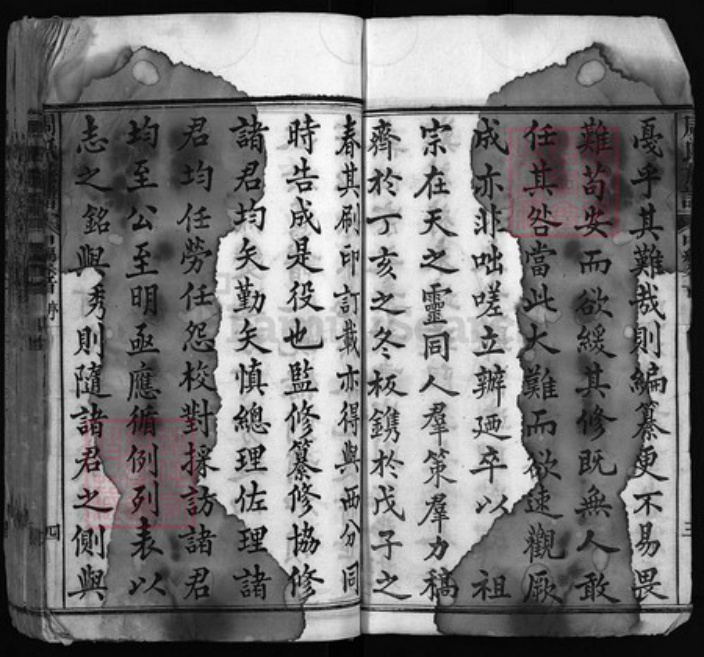 戞乎其難哉則編纂更不易畏
難苟安而欲緩其修既無人敢
任其咎當此大難而欲速觀厥
成亦非咄嗟立辦廼卒以 祖
宗在天之靈同人羣策羣力稿
齊於丁亥之冬板鐫於戊子之
春其刷印訂載亦得與西分同
時告成是役也監修纂修協修
諸君均矣勤矣慎總理佐理諸
君均任勞任怨校對採訪諸君
均至公至明亟應循例列表以
志之銘與秀則隨諸君之側與
四